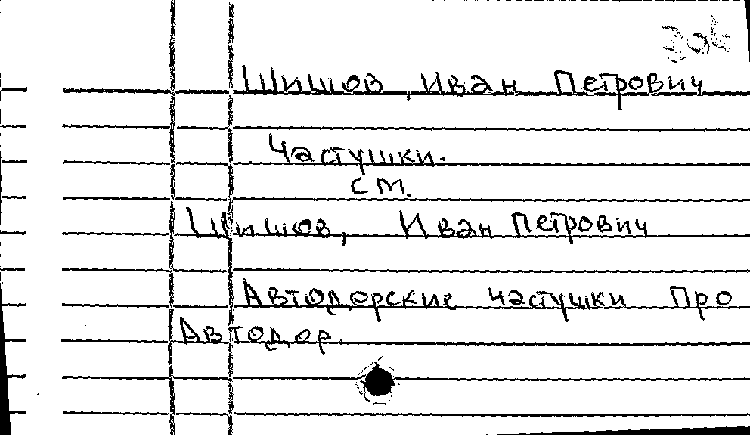 Шишов, Иван Петрович
Частушки.
см.
Шишов, Иван Петрович
Автодорские частушки про
Автодор.